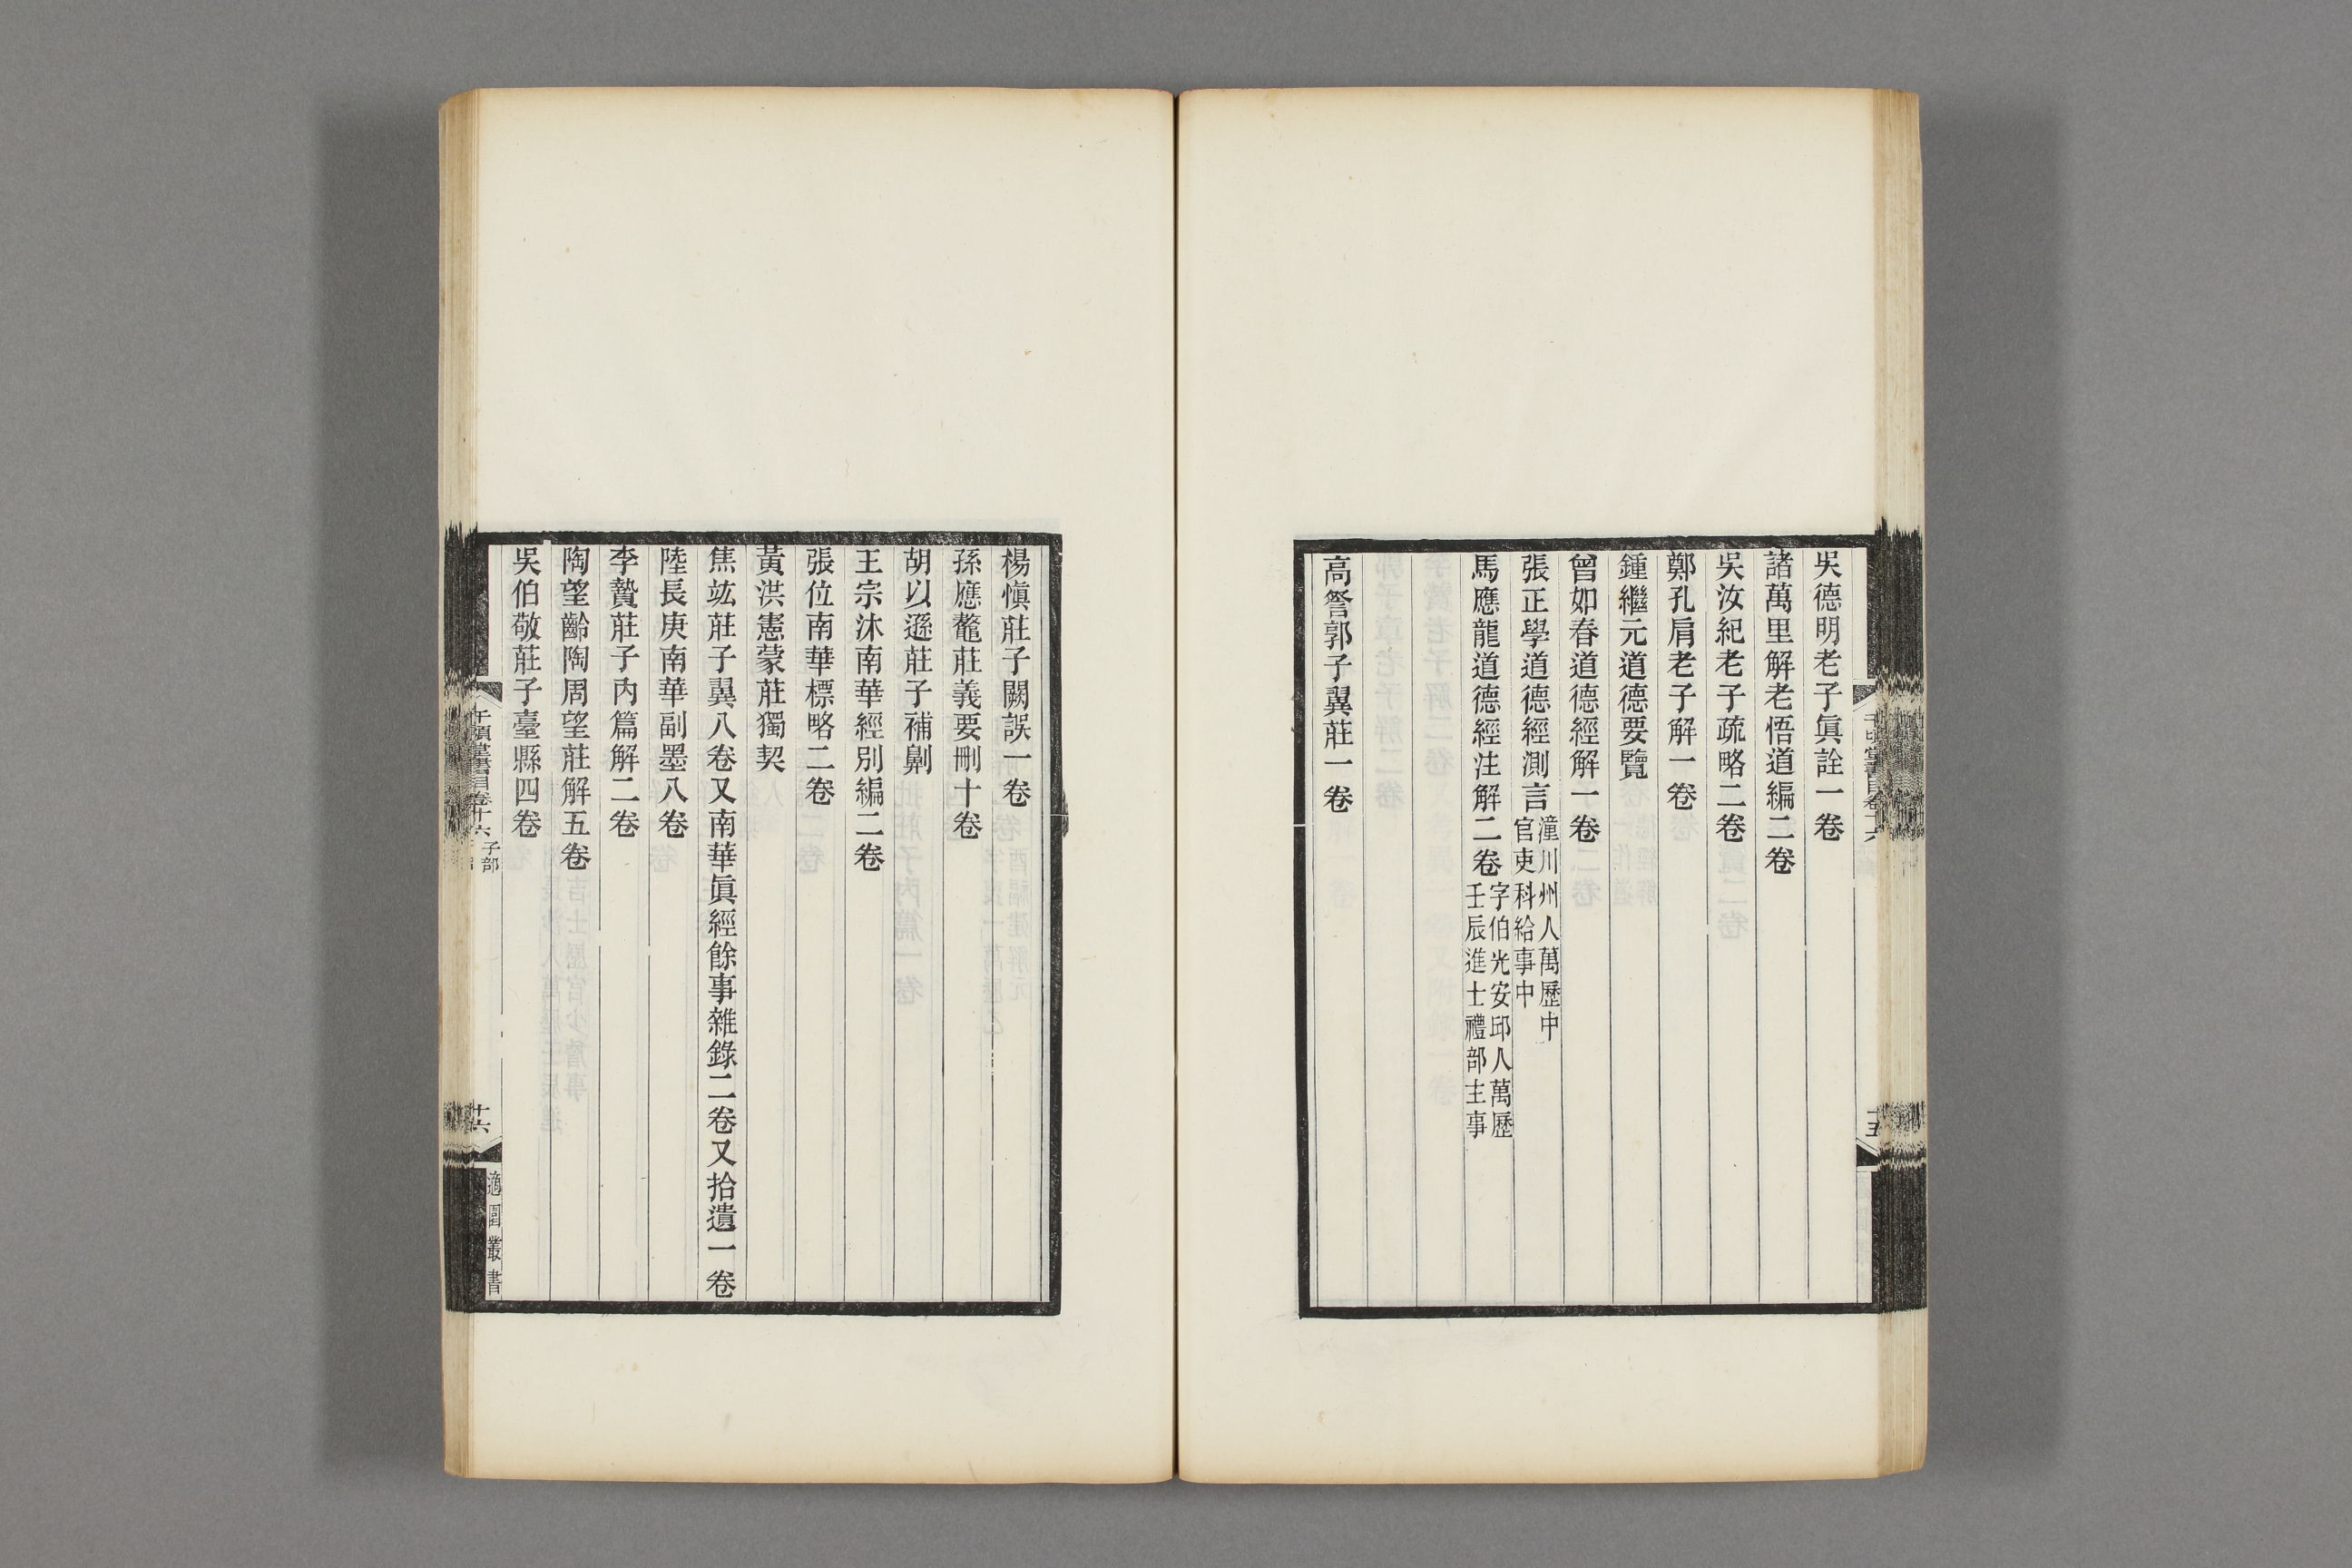 吳德明老子眞詮一卷
諸萬里解老悟道編二卷
吳汝紀老子疏略二卷
鄭孔肩老子解一卷
鍾繼元道德要覽
曾如春道德經解一卷
張正學道德經測言潼川州人萬歷中
官吏科給事中
馬應龍道德經注解二卷字伯光安邱人萬歷
壬辰進士禮部主事
高䇓郭子翼莊一卷
楊愼莊子闕誤一卷
孫應鼇莊義要刪十卷
胡以遜莊子補劓
王宗沐南華經別編二卷
張位南華標略二卷
黃洪憲蒙莊獨契
焦竑莊子翼八卷又南華眞經餘事雜錄二卷又拾遺一卷
陸長庚南華副墨八卷
李贄莊子內篇解二卷
陶望齡陶周望莊解五卷
吳伯敬莊子臺縣四卷
千頃堂書目卷十六 子部
十六
適園叢書